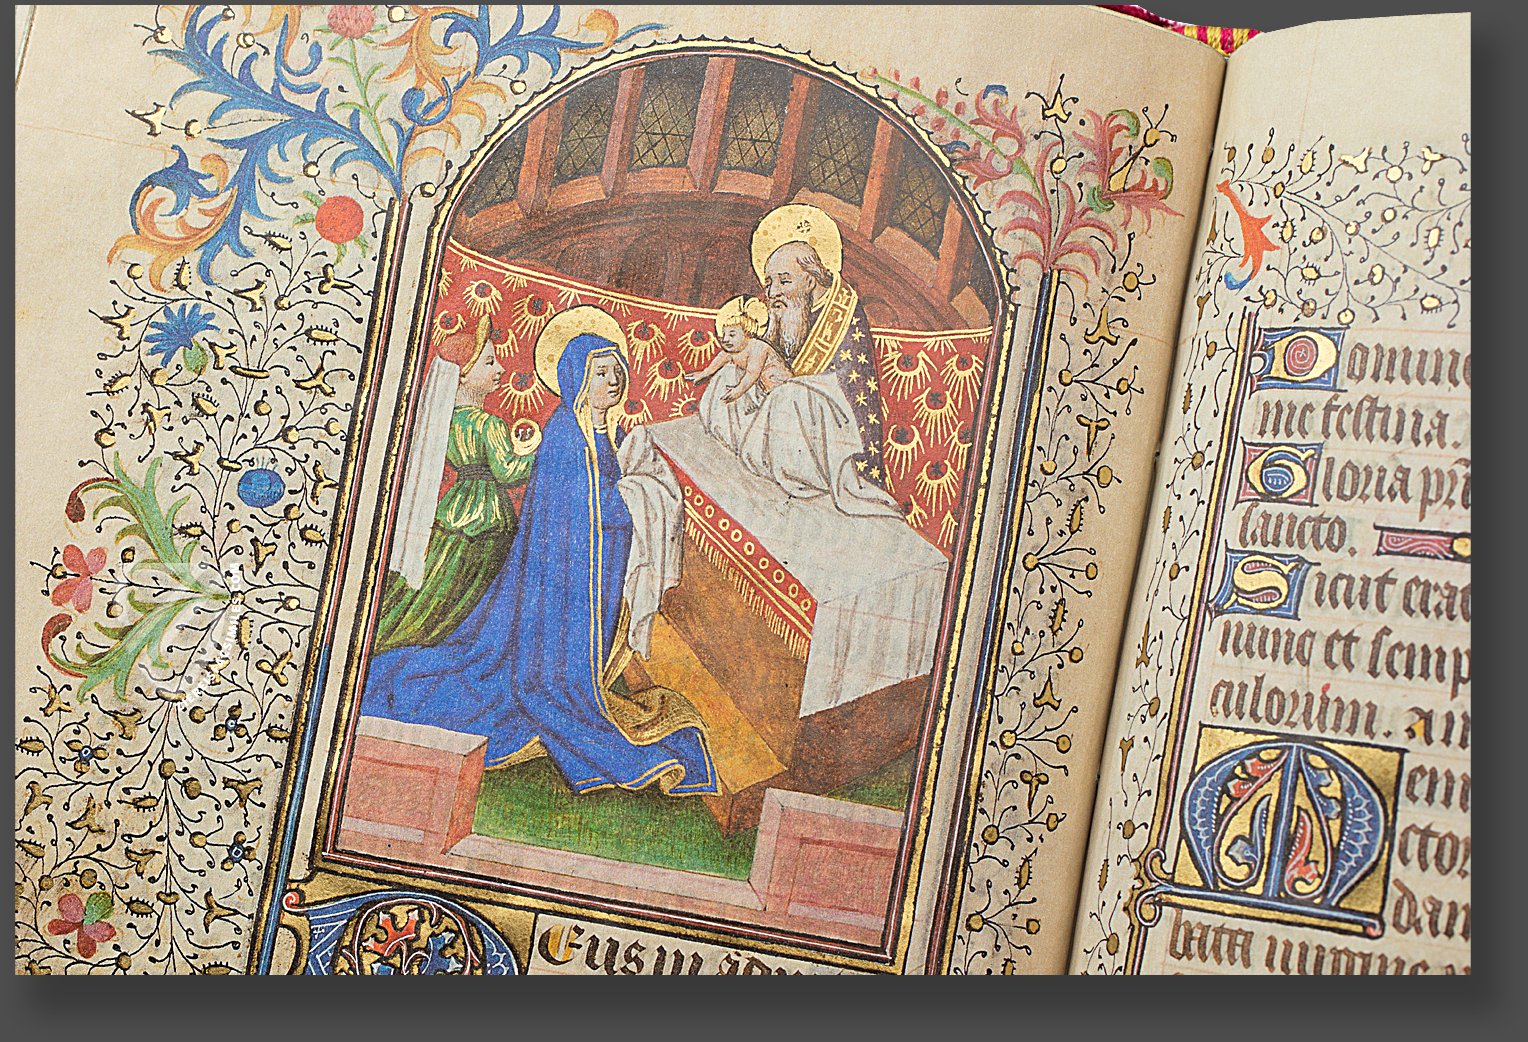 Deus in adiu
Domine
me festina.
Gloria pr̄i
sancto.
Sicut erat
nunc et semp
culorum. Am
Mem
ctor
dan